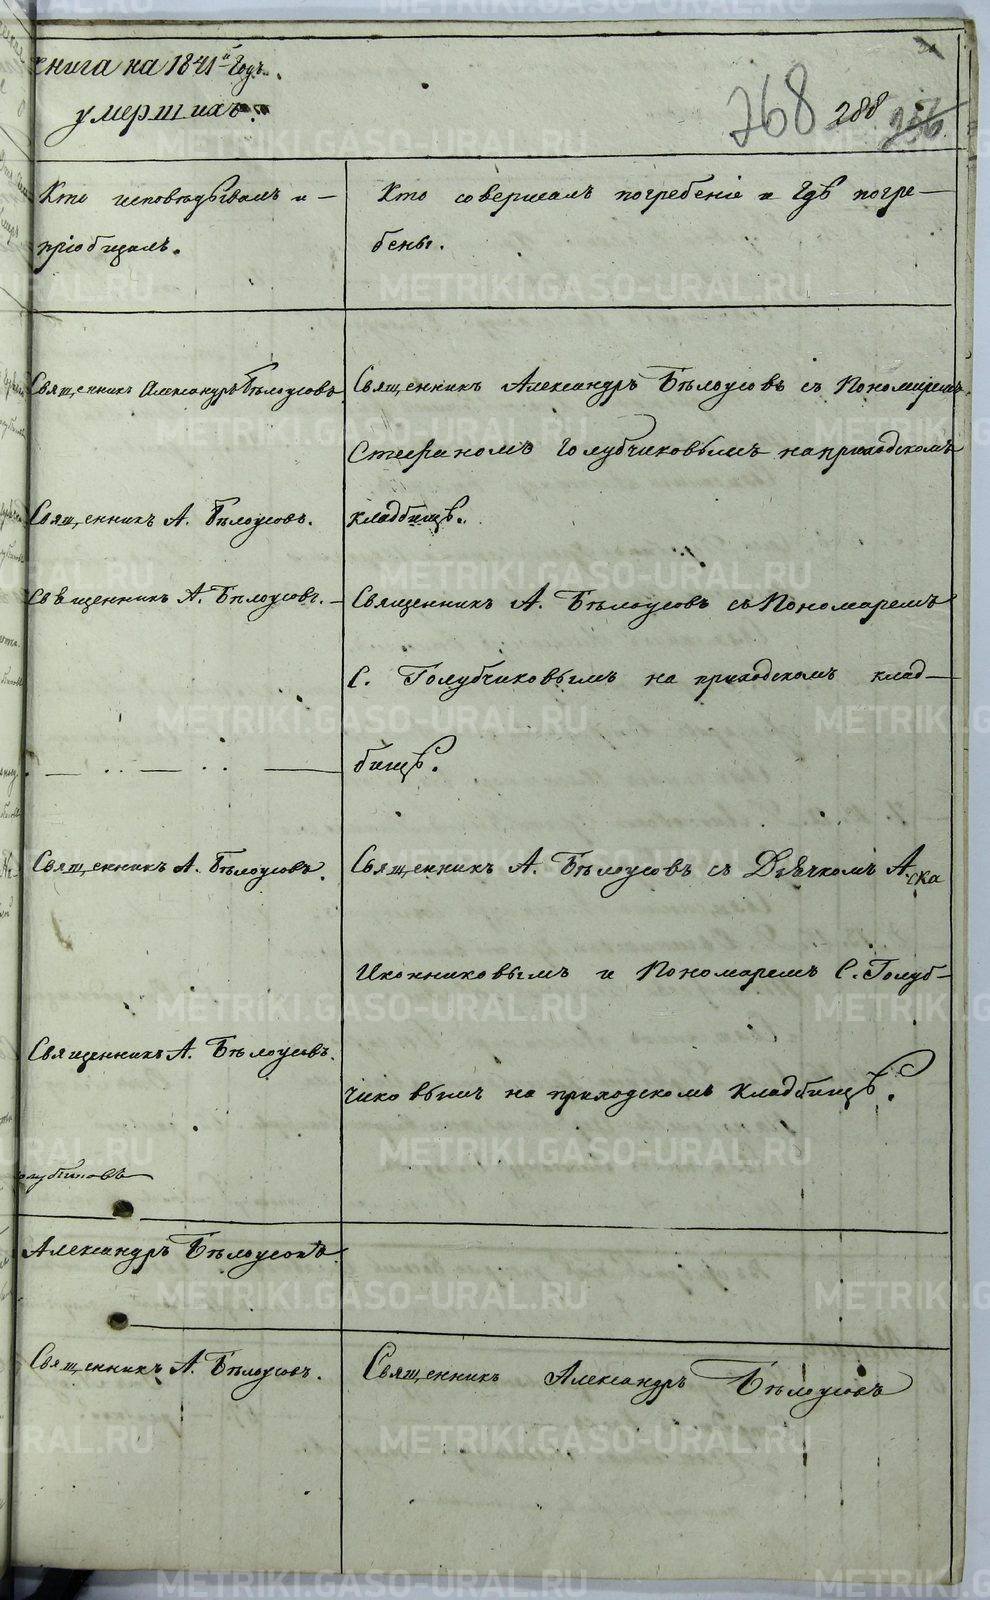 книга на 1841й Годъ.
умершихъ.
268 288 256
Кто исповѣдывалъ и –
пріобщалъ.
Кто совершалъ погребеніе и гдѣ погре–
бены.
Священникъ Александръ Бѣлоусовъ
Священникъ А. Бѣлоусовъ.
Священникъ А. Бѣлоусовъ. –
Священникъ А. Бѣлоусовъ.
Священникъ А. Бѣлоусовъ.
Александръ Бѣлоусовъ
Священникъ А. Бѣлоусовъ.
Священникъ Александръ Бѣлоусовъ съ Пономаремъ
Стефаномъ Голубчиковымъ на приходскомъ
кладбищѣ.
Священникъ А. Бѣлоусовъ съ Пономаремъ
С. Голубчиковымъ на приходскомъ клад–
бищѣ.
Священникъ А. Бѣлоусовъ съ Дьячкомъ
Иконниковымъ и Пономаремъ С. Голуб–
чиковымъ на приходскомъ кладбищѣ.
Священникъ Александръ Бѣлоусовъ
METRIKI.GASO-URAL.RU